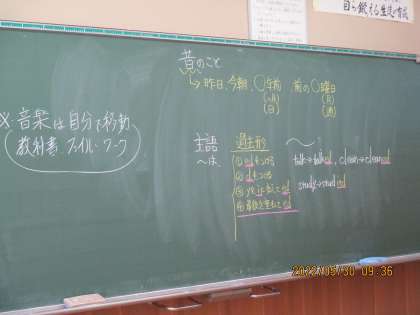 自ら鍛える生徒が育
昔のこと
↳昨日、今朝、〇年前 前の〇曜日
(ヶ月) (月)
(日) (週)
※音楽は自分で移動
教科書 ファイル・ワーク
主語 過去形 〜
〜は、
① edをつける talk→talked, clean→cleaned
② dをつける
③ yをiに変えてed study→studied
2022/05/30 09:36